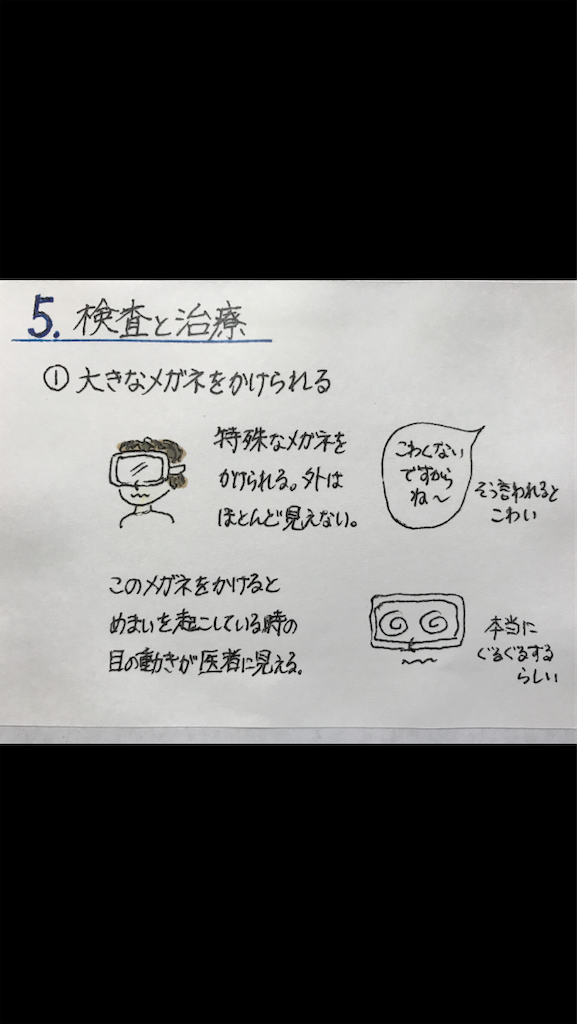 5. 検査と治療
① 大きなメガネをかけられる
特殊なメガネを
かけられる。外は
ほとんど見えない。
こわくない
ですから
ね〜
そう言われると
こわい
このメガネをかけると
めまいを起こしている時の
目の動きが医者に見える。
本当に
ぐるぐるする
らしい